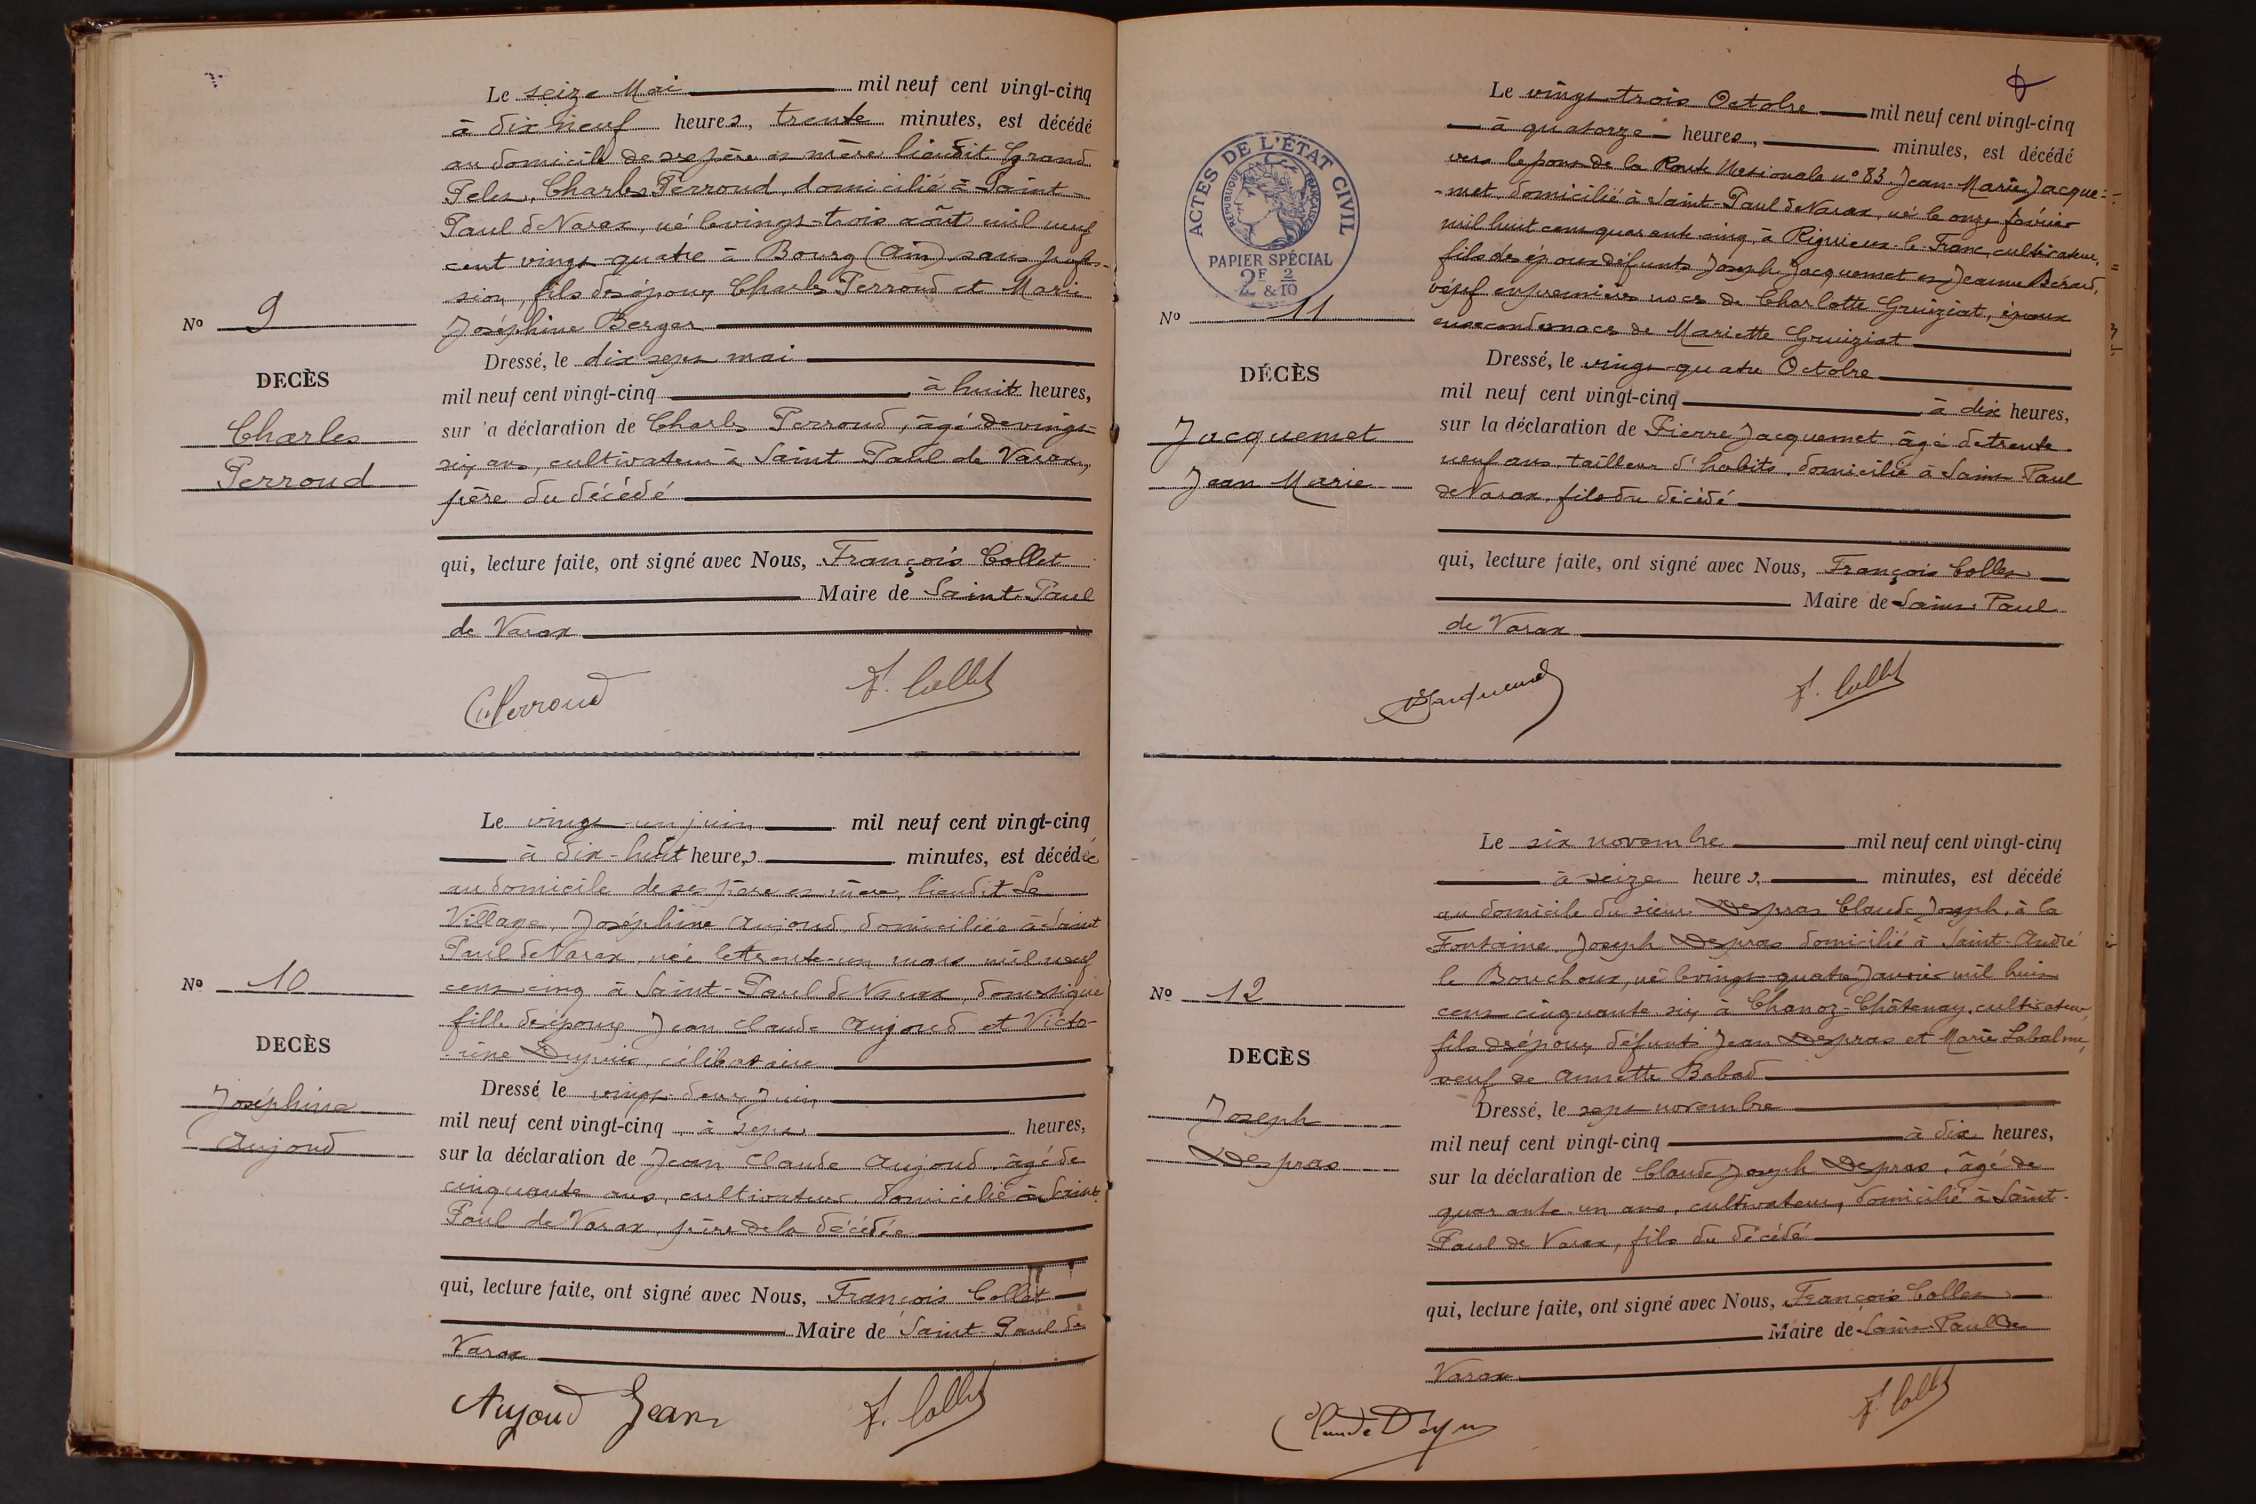 Le seize Mai mil neuf cent vingt-cinq
à dix neuf heures, trente minutes, est décédé
au domicile de ses père et mère lieudit Grand
Peles, Charles Perroud, domicilié à Saint
Paul de Varax, né le vingt-trois août mil neuf
cent vingt quatre à Bourg (Ain) sans profes-
sion, fils des époux Charles Perroud et Marie
Joséphine Berger
Nº 9
Dressé, le dix sept mai
DECÈS
mil neuf cent vingt-cinq à huit heures,
Charles
Perroud
sur 'a déclaration de Charles Perroud, âgé de vingt
six ans, cultivateur à Saint Paul de Varax,
père du décédé
qui, lecture faite, ont signé avec Nous, François Collet
Maire de Saint-Paul
de Varax
C Perroud F. Collet
Le vingt-un juin mil neuf cent vingt-cinq
à dix-huit heures minutes, est décédée
au domicile de ses père et mère, lieudit Le
Village, Joséphine Aujoud, domiciliée à Saint
Paul de Varax, née le trente-un mars mil neuf
cent cinq à Saint-Paul de Varax, domestique
fille des époux Jean Claude Aujoud et Victo-
rine Dupuis, célibataire
Nº 10
DECÈS
Joséphine
Aujoud
Dressé, le vingt-deux Juin
mil neuf cent vingt-cinq à sept heures,
sur la déclaration de Jean Claude Aujoud, âgé de
cinquante ans, cultivateur, domicilié à Saint
Paul de Varax, père de la décédée
qui, lecture faite, ont signé avec Nous, François Collet
Maire de Saint-Paul de
Varax
Aujoud Jean F. Collet
ACTES DE L'ÉTAT CIVIL
RÉPUBLIQUE FRANÇAISE
PAPIER SPÉCIAL
2F & 2/10
Le vingt-trois Octobre mil neuf cent vingt-cinq
à quatorze heures, minutes, est décédé
vers le pont de la Route Nationale nº 83 Jean-Marie Jacque-
-met, domicilié à Saint-Paul de Varax, né le onze février
mil huit cent quarante cinq, à Rignieux-le-Franc, cultivateur,
fils des époux défunts Joseph Jacquemet et Jeanne Bérard,
veuf en premières noces de Charlotte Guiziat, époux
en secondes noces de Mariette Gruiziat
Nº 11
DÉCÈS
Jacquemet
Jean Marie
Dressé, le vingt-quatre Octobre
mil neuf cent vingt-cinq à dix heures,
sur la déclaration de Pierre Jacquemet, âgé de trente
neuf ans, tailleur d'habits, domicilié à Saint Paul
de Varax, fils du décédé
qui, lecture faite, ont signé avec Nous, François Collet
Maire de Saint Paul
de Varax
Jacquemet F. Collet
Le six novembre mil neuf cent vingt-cinq
à seize heures, minutes, est décédé
au domicile du sieur Despras Claude Joseph, à la
Fontaine, Joseph Despras domicilié à Saint-André
le Bouchoux, né le vingt-quatre Janvier mil huit
cent cinquante six à Chanoz-Châtenay, cultivateur,
fils des époux défunts Jean Despras et Marie Labalme,
veuf de Annette Babad
Nº 12
DECÈS
Joseph
Despras
Dressé, le sept novembre
mil neuf cent vingt-cinq à dix heures,
sur la déclaration de Claude Joseph Despras, âgé de
quarante-un ans, cultivateur, domicilié à Saint-
Paul de Varax, fils du décédé
qui, lecture faite, ont signé avec Nous, François Collet
Maire de Saint Paul de
Varax
Claude F. Collet